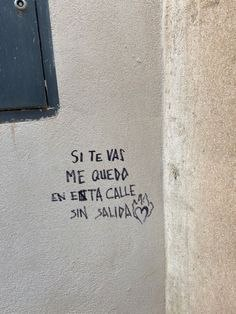 SI TE VAS
ME QUEDO
EN ESTA CALLE
SIN SALIDA